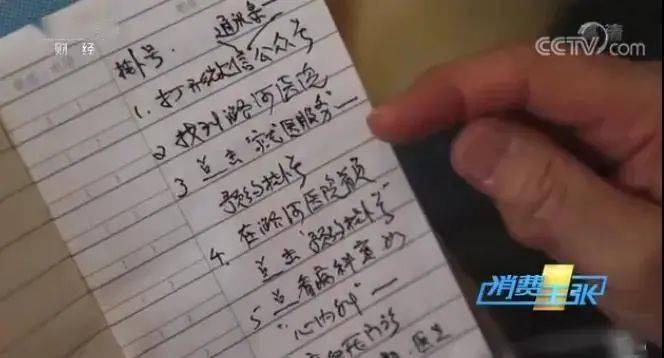 财 经
清
CCTV.com
挂号. 通讯录
1. 打开微信公众号
2 找到潞河医院
3 点击“就医服务”—
预约挂号
4. 在潞河医院
点击“预约挂号”
5 点看病科室的
“心内科”—
消费主张